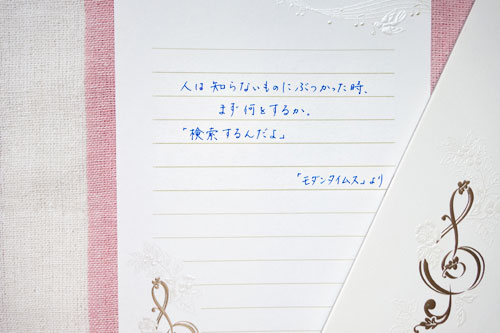 人は知らないものにぶつかった時、
まず何をするか。
「検索するんだよ」
「モダンタイムス」より